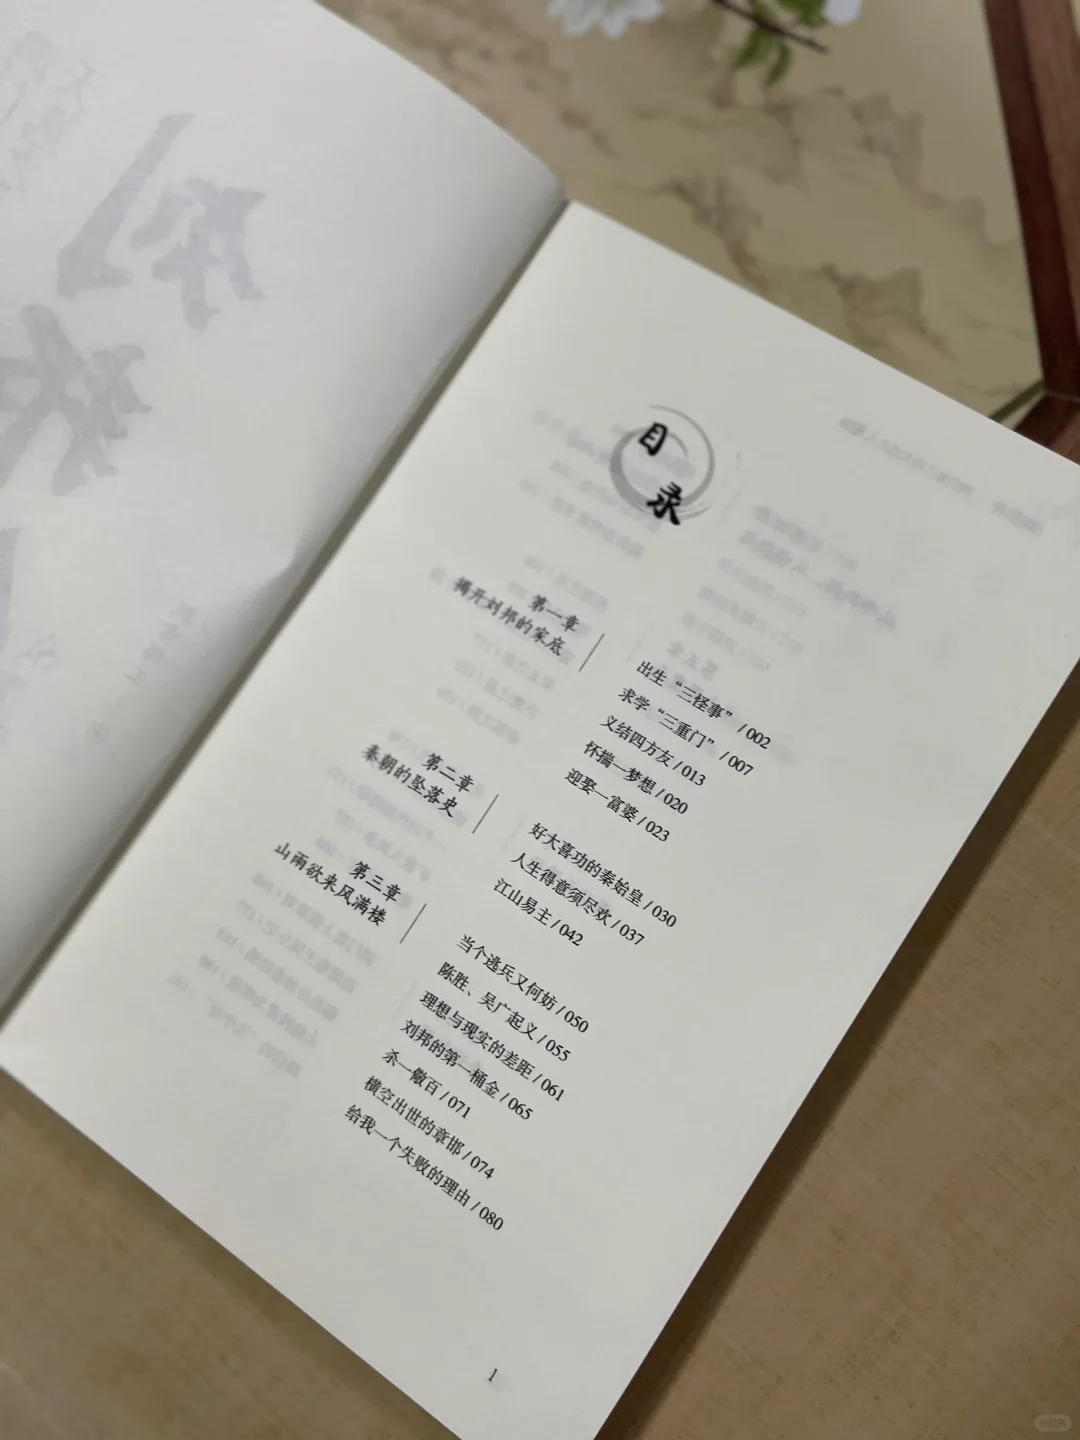 目
录
第一章
揭开刘邦的家底
出生“三怪事” / 002
求学“三重门” / 007
义结四方友 / 013
怀揣一梦想 / 020
迎娶一富婆 / 023
第二章
秦朝的坠落史
好大喜功的秦始皇 / 030
人生得意须尽欢 / 037
江山易主 / 042
第三章
山雨欲来风满楼
当个逃兵又何妨 / 050
陈胜、吴广起义 / 055
理想与现实的差距 / 061
刘邦的第一桶金 / 065
杀一儆百 / 071
横空出世的章邯 / 074
给我一个失败的理由 / 080
1
小红书